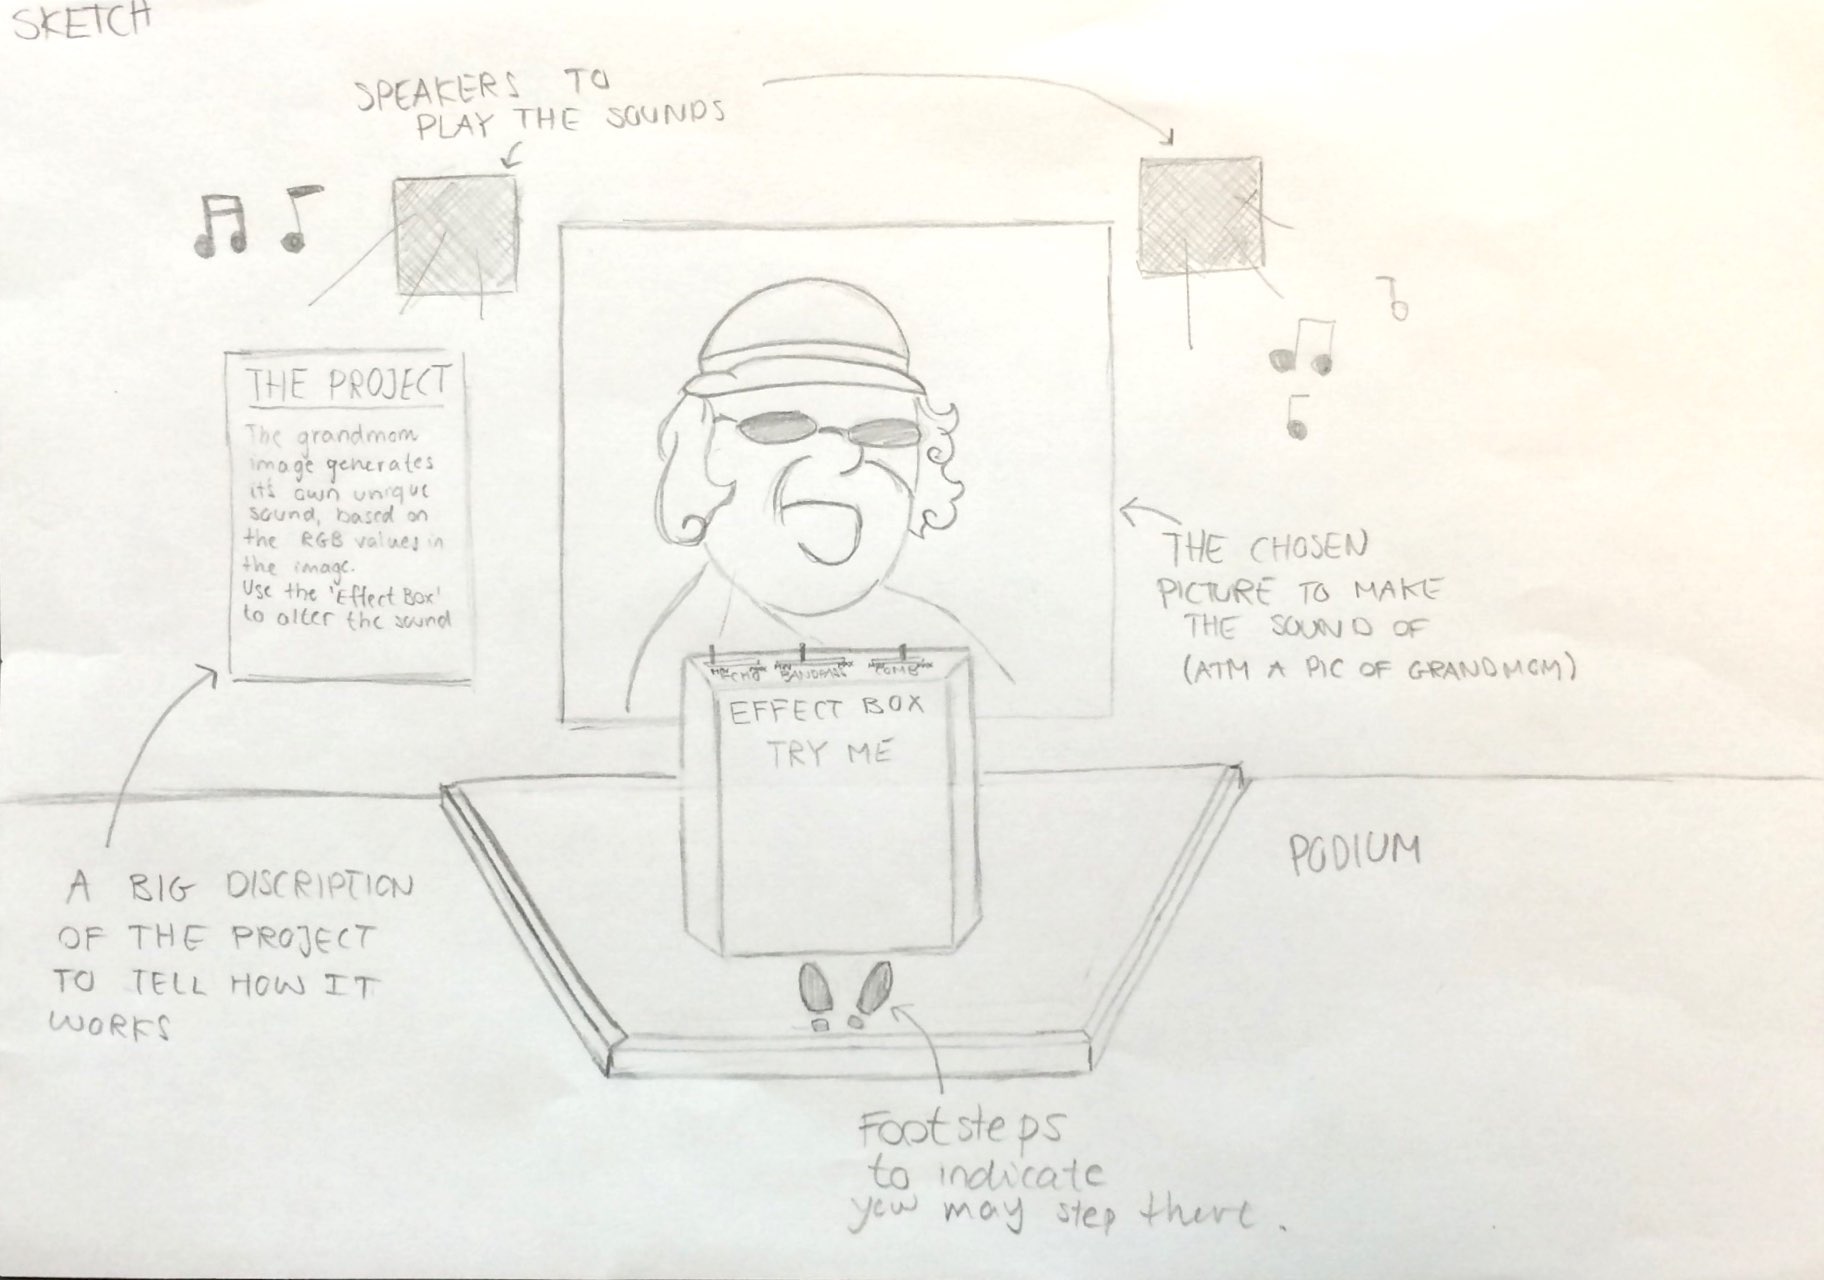 SKETCH
SPEAKERS TO
PLAY THE SOUNDS
THE PROJECT
The grandmom
image generates
it's own unique
sound, based on
the RGB values in
the image.
Use the 'Effect Box'
to alter the sound
THE CHOSEN
PICTURE TO MAKE
THE SOUND OF
(ATM A PIC OF GRANDMOM)
MIN MAX MIN MAX MIN MAX
ECHO BANDPASS COMB
EFFECT BOX
TRY ME
PODIUM
A BIG DISCRIPTION
OF THE PROJECT
TO TELL HOW IT
WORKS
Footsteps
to indicate
you may step there.